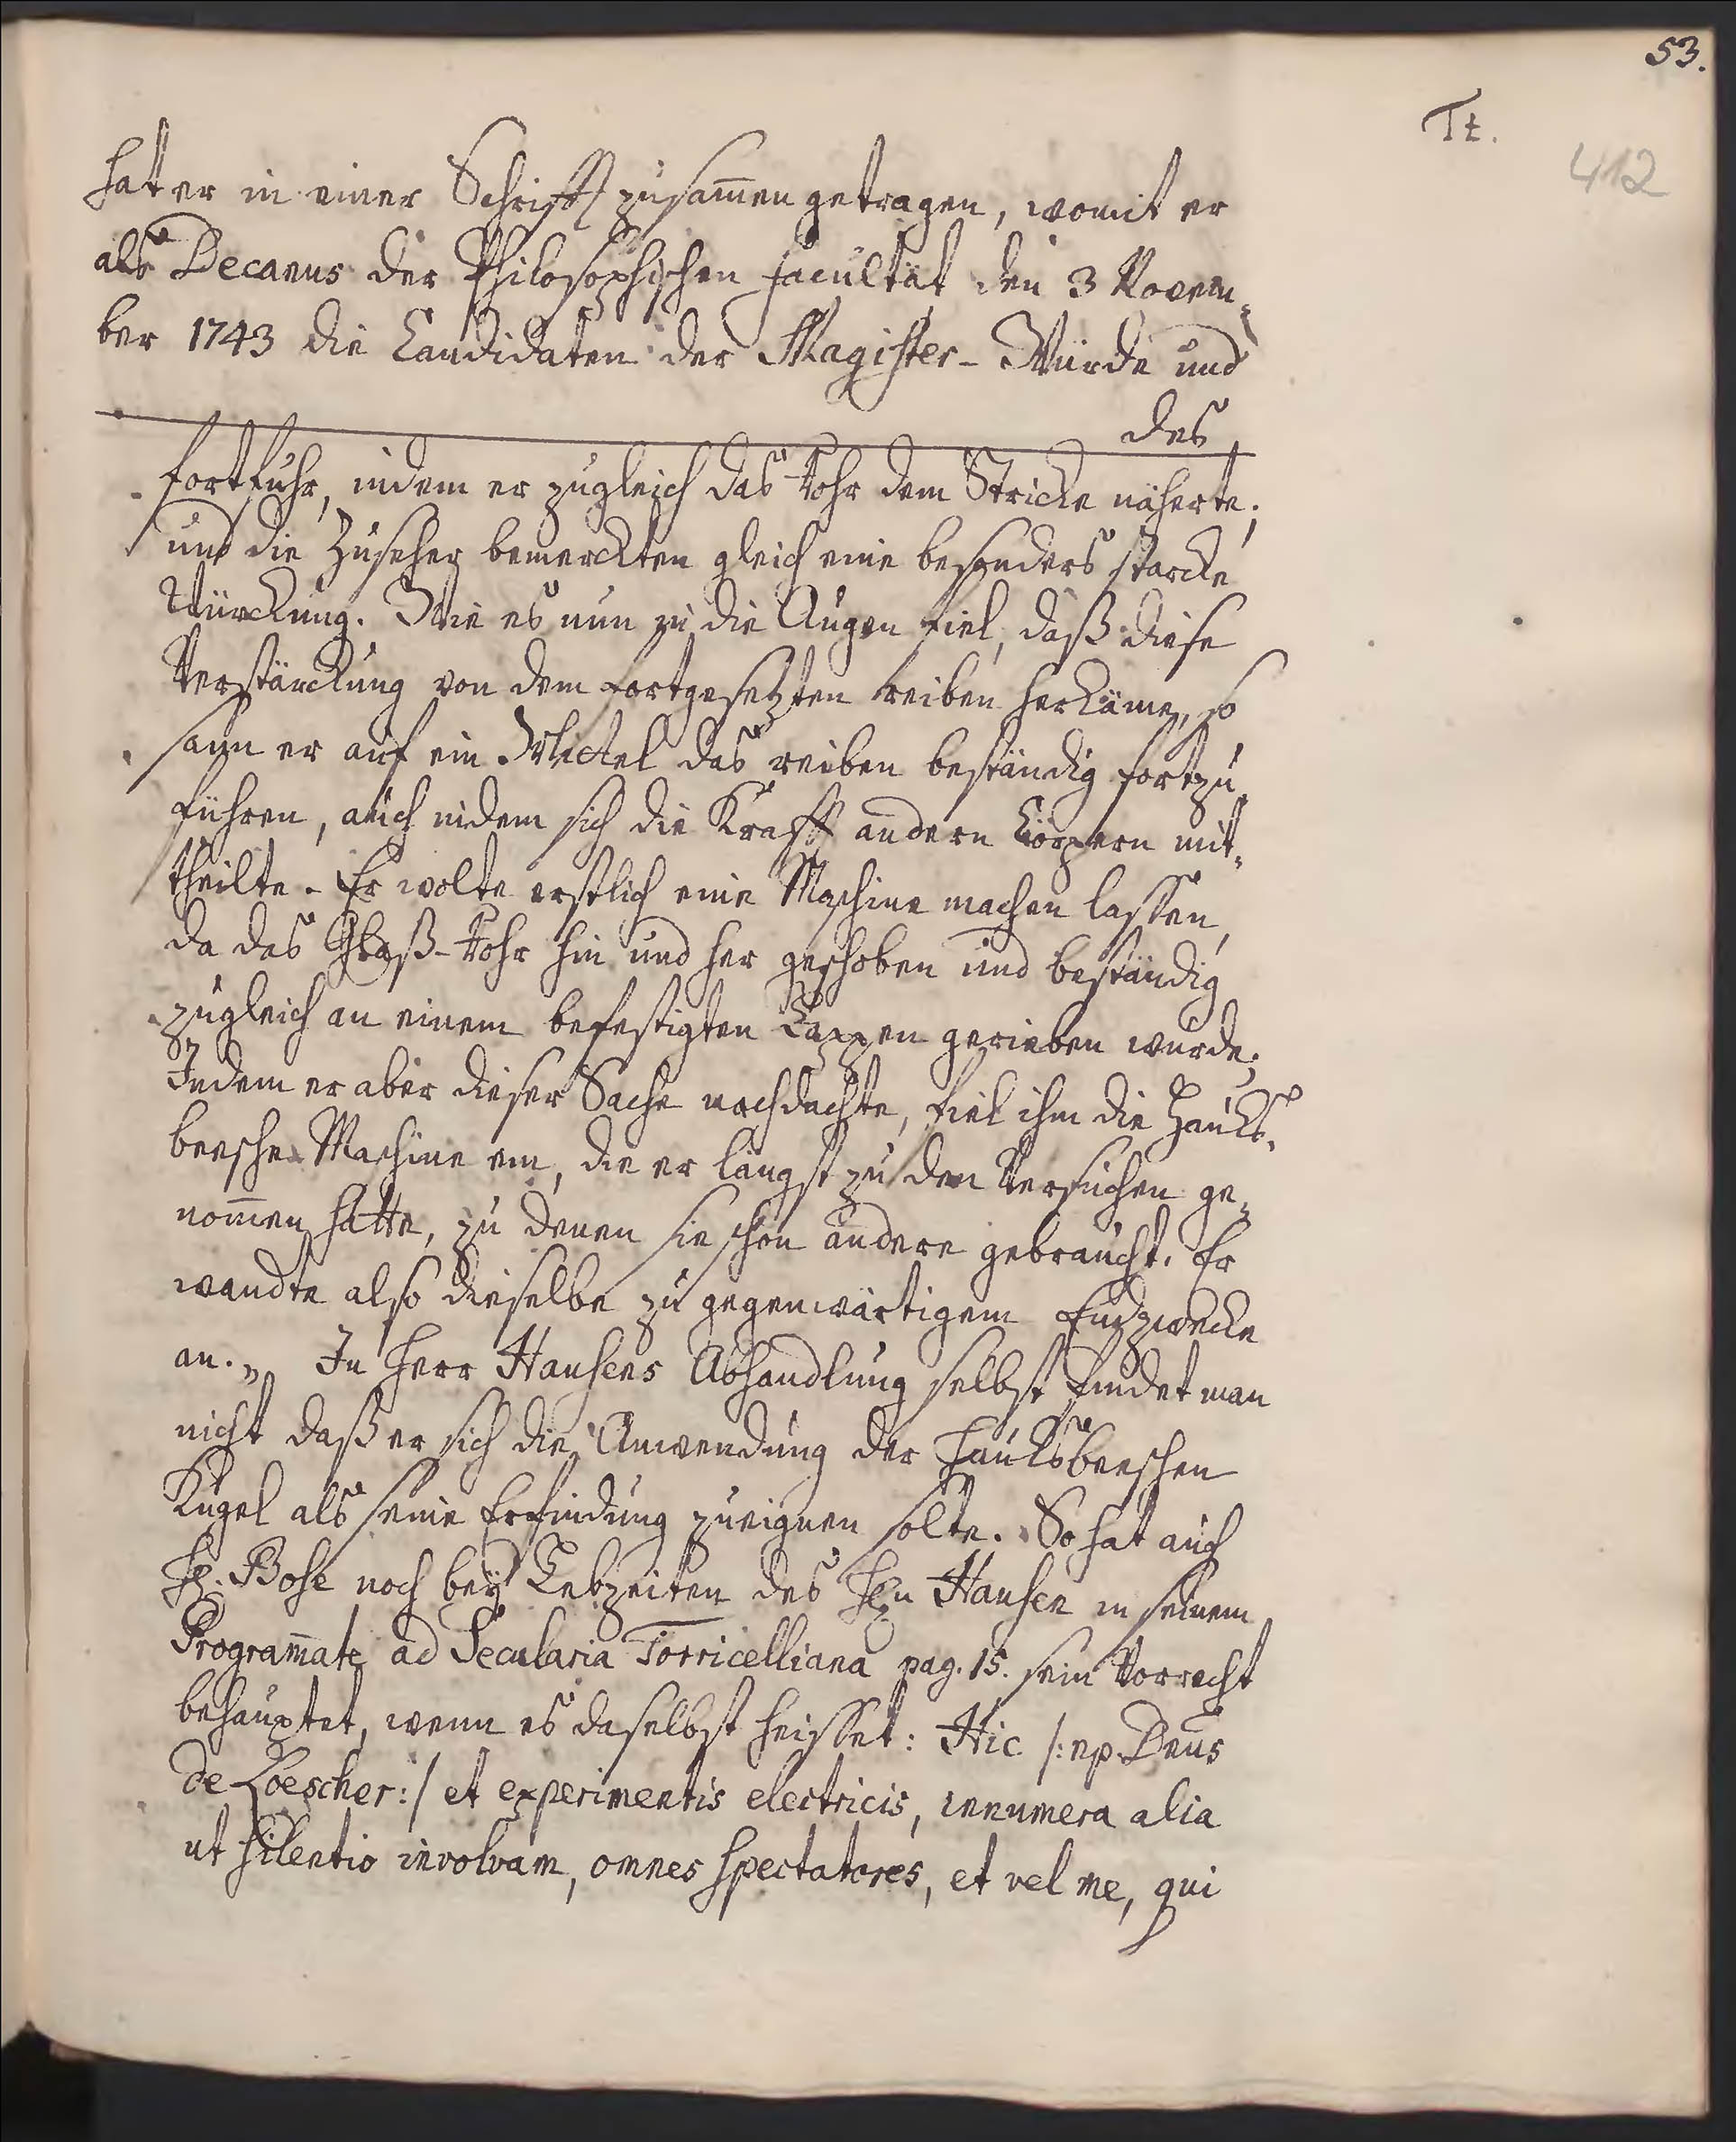 53.
Tt.
412
hat er in einer Schrifft zusam̅en getragen, womit er
als Decanus der Philosophischen Facultät den 3 Novem-
ber 1743 die Candidaten der Magister-Würde und
des
fortfuhr, indem er zugleich das Rohr dem Stricke näherte;
und die Zuseher bemerckten gleich eine besonders starcke
Würckung. Wie es nun in die Augen fiel, daß diese
Verstärckung von dem fortgesetzten reiben herkäme, so
sann er auf ein Mittel das reiben beständig fortzu-
führen, auch indem sich die Krafft andern Cörpern mit-
theilte. Er wolte erstlich eine Maschine machen lassen,
da das Glaß-Rohr hin und her geschoben und beständig
zugleich an einem befestigten Lappen gerieben wurde;
Indem er aber dieser Sache nachdachte, fiel ihm die Hauks-
beesche Maschine ein, die er längst zu den Versuchen ge-
nom̅en hatte, zu denen sie schon andere gebraucht. Er
wandte also dieselbe zu gegenwärtigem Endzwecke
an.„ In Herr Hausens Abhandlung selbst findet man
nicht daß er sich die Anwendung der Hauksbeeschen
Kugel als seine Erfindung zueignen solte. So hat auch
Hr. Bose noch bey Lebzeiten des Hrn Hausen in seinem
Program̅ate ad Secularia Torricelliana pag. 15. sein Vorrecht
behauptet, wenn es daselbst heisset: Hic /: np. Dnus
de Loescher :/ et experimentis electricis, innumera alia
ut silentio involvam, omnes spectatores, et vel me, qui